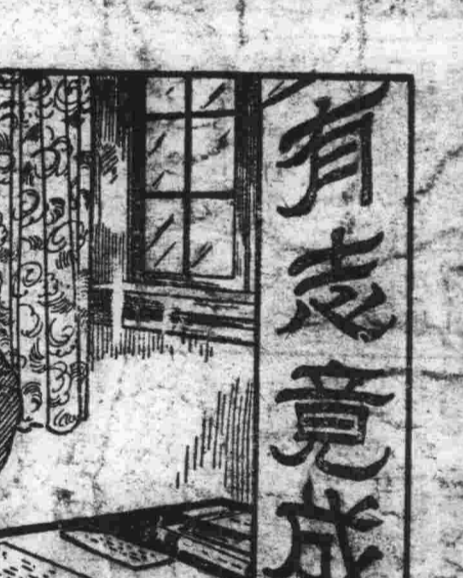 有志竟成